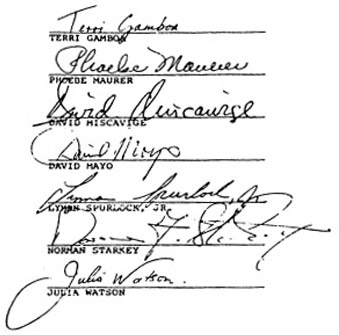 Terri Gamboa
TERRI GAMBOA
Phoebe Maurer
PHOEBE MAURER
David Miscavige
DAVID MISCAVIGE
David Mayo
DAVID MAYO
Lyman Spurlock, Jr
LYMAN SPURLOCK, JR
Norman F. Starkey
NORMAN STARKEY
Julia Watson
JULIA WATSON